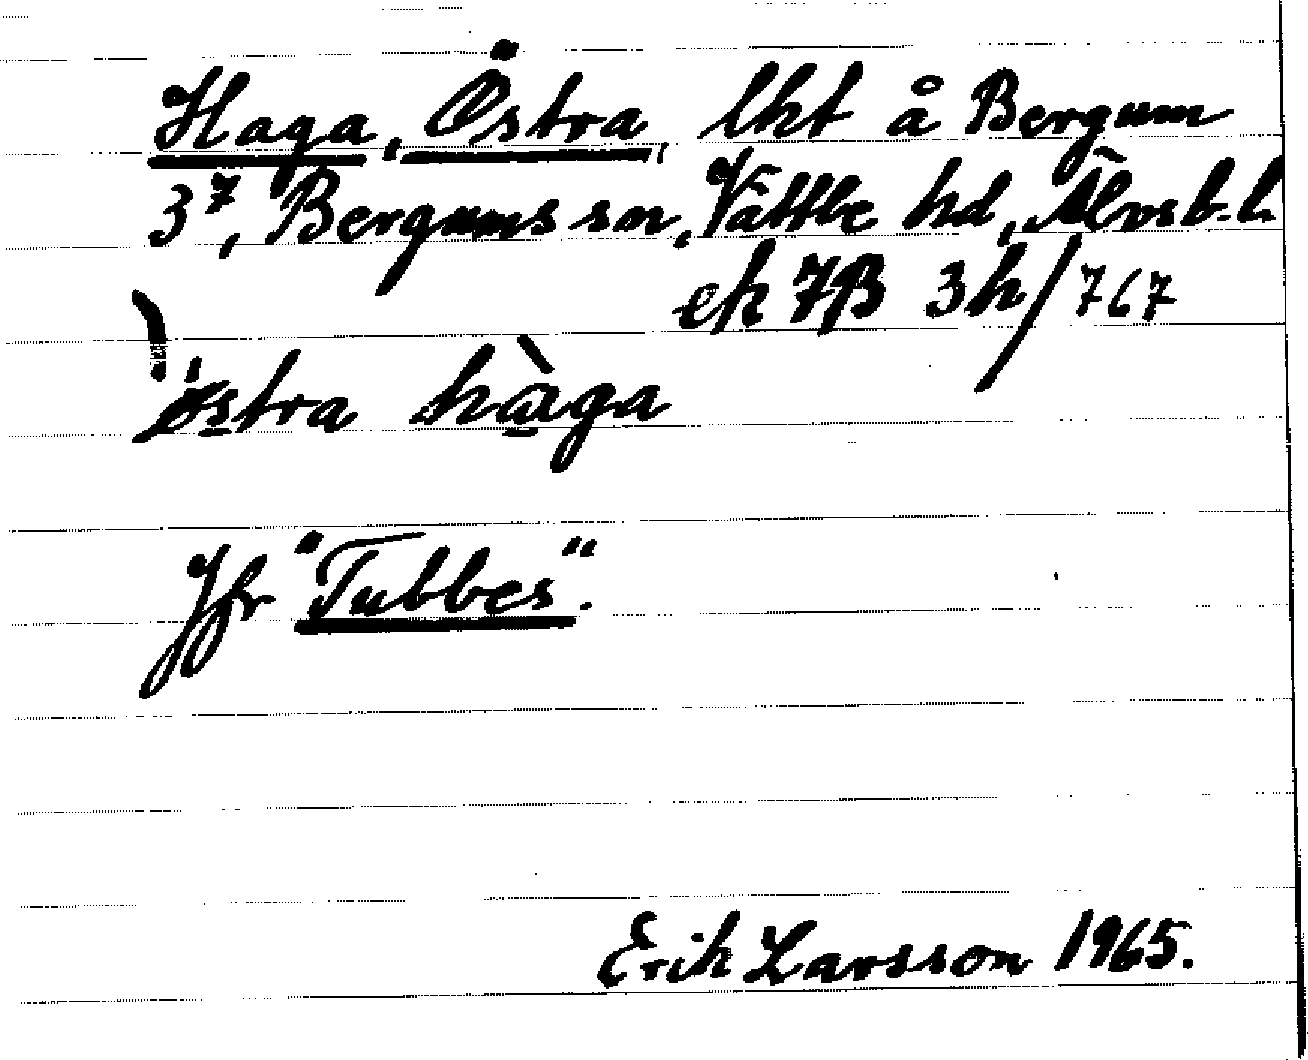 Haga, Östra, lht å Bergum
3⁷, Bergums sn, Vättle hd, Älvsb. l.
ek 7B 3h/767
östra hàga
Jfr "Tubbes".
Erik Larsson 1965.